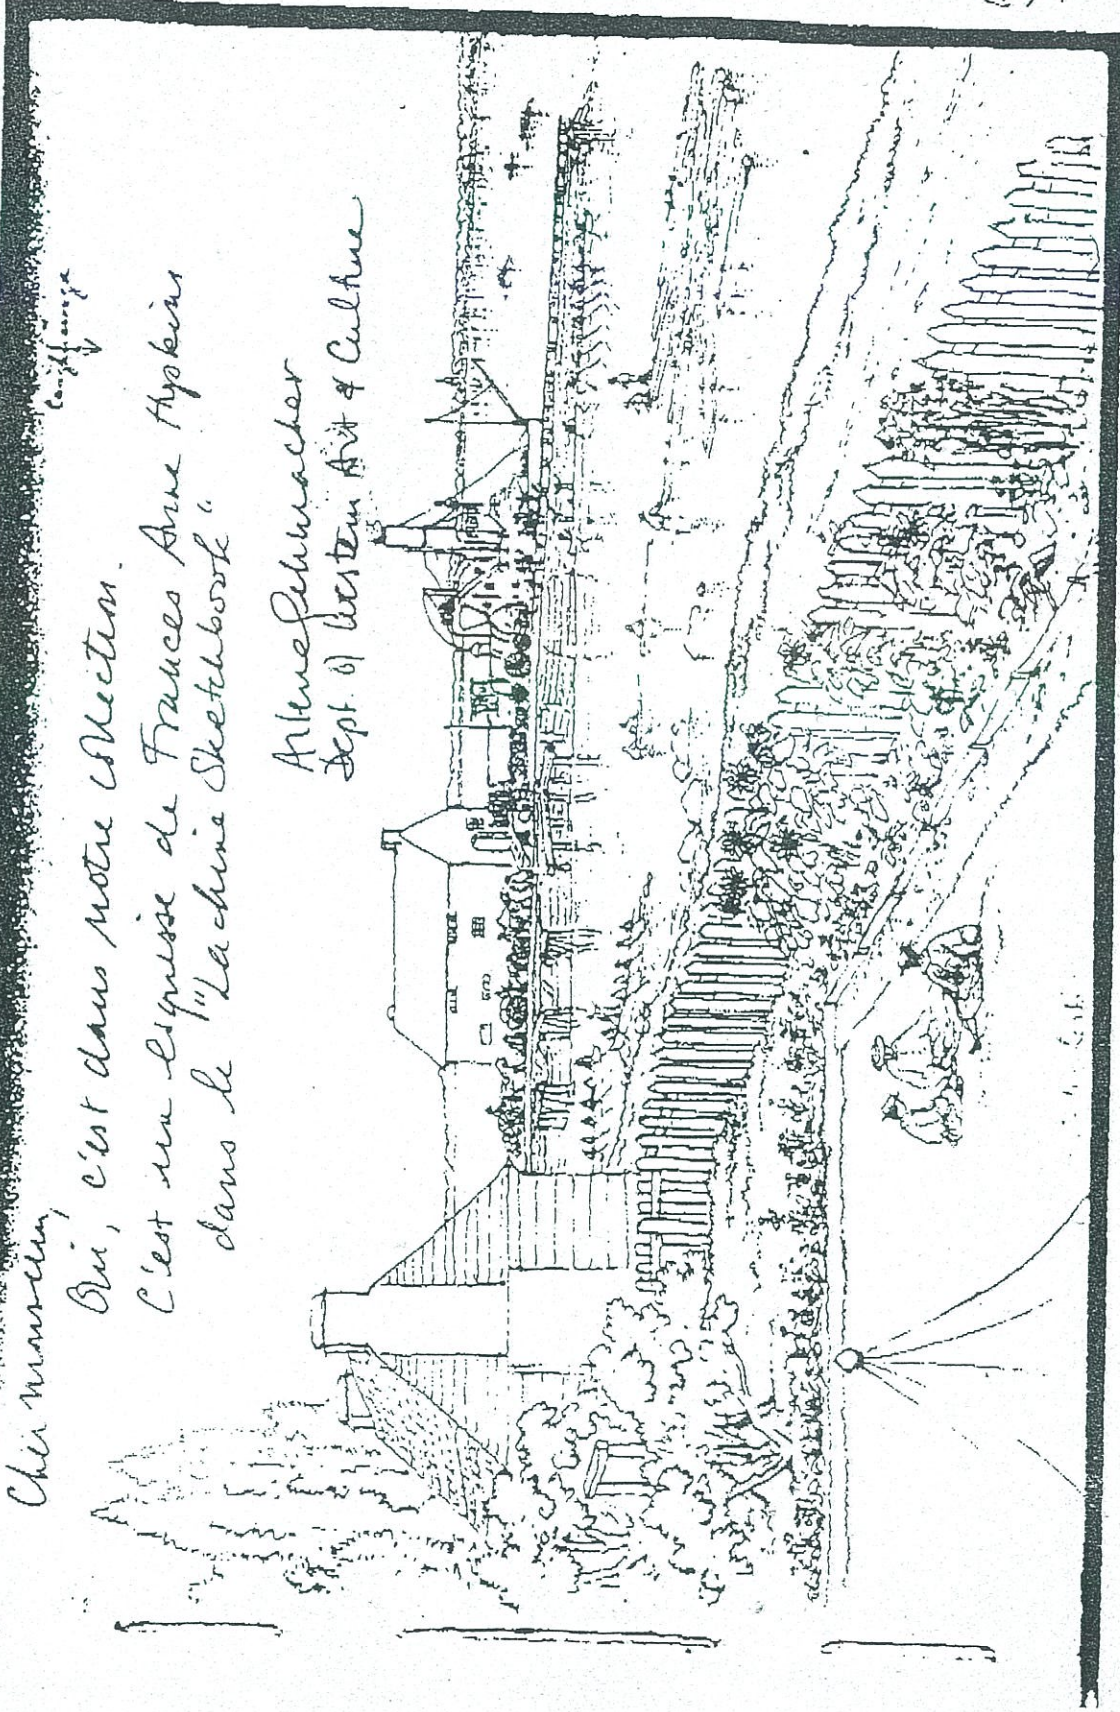 Cher monsieur,
Oui, c'est dans notre collection.
C'est une esquisse de Frances Anne Hopkins
dans le "Lachine Sketchbook".
Arlene Gehmacher
Dept of Western Art & Culture